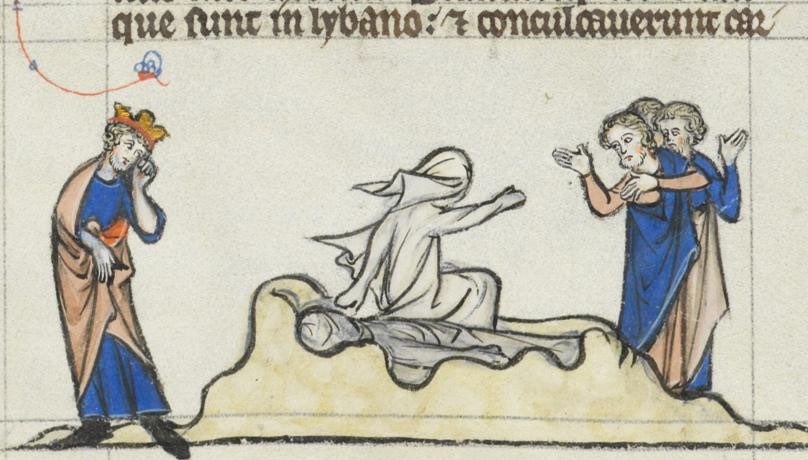 que sunt in lybano: ⁊ conculcauerunt car